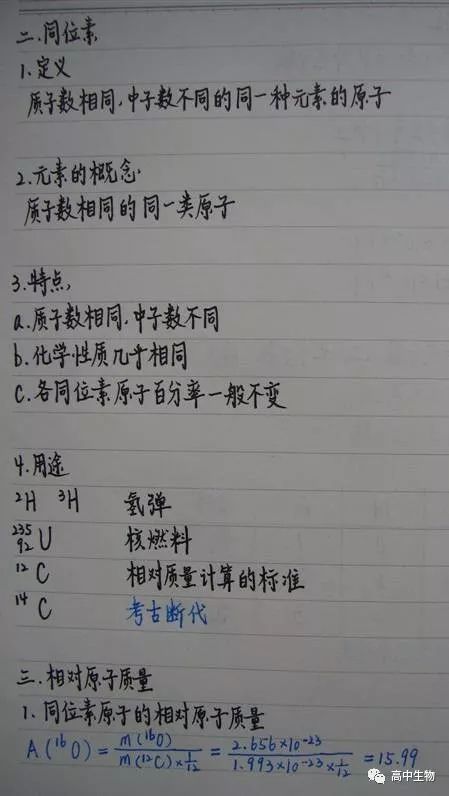 二.同位素
1.定义
质子数相同.中子数不同的同一种元素的原子
2.元素的概念
质子数相同的同一类原子
3.特点,
a.质子数相同.中子数不同
b.化学性质几乎相同
C.各同位素原子百分率一般不变
4.用途
²H ³H 氢弹
²³⁵₉₂U 核燃料
¹²C 相对质量计算的标准
¹⁴C 考古断代
三.相对原子质量
1.同位素原子的相对原子质量
A(¹⁶O) = m(¹⁶O) / m(¹²C)×1/12 = 2.656×10⁻²³ / 1.993×10⁻²³×1/12 = 15.99
高中生物